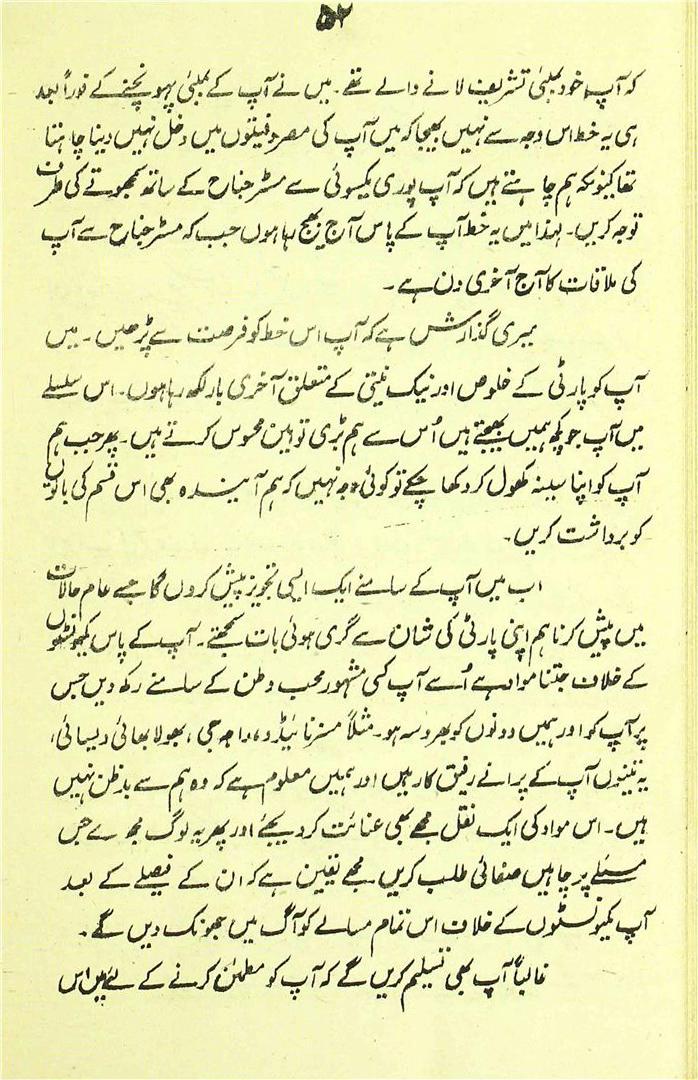 ۵۲
کہ آپ خود بمبئی تشریف لانے والے تھے۔ میں نے آپ کے بمبئی پہونچنے کے فوراً بعد
ہی یہ خط اس وجہ سے نہیں بھیجا کہ میں آپ کی مصروفیتوں میں دخل نہیں دینا چاہتا
تھا کیونکہ ہم چاہتے ہیں کہ آپ پوری یکسوئی سے مسٹر جناح کے ساتھ سمجھوتے کی طرف
توجہ کریں۔ لہذا میں یہ خط آپ کے پاس آج بھیج رہا ہوں جب کہ مسٹر جناح سے آپ
کی ملاقات کا آج آخری دن ہے۔
میری گذارش ہے کہ آپ اس خط کو فرصت سے پڑھیں۔ میں
آپ کو پارٹی کے خلوص اور نیک نیتی کے متعلق آخری بار لکھ رہا ہوں۔ اس سلسلے
میں آپ جو کچھ ہمیں بھیجتے ہیں اُس سے ہم بڑی توہین محسوس کرتے ہیں۔ پھر جب ہم
آپ کو اپنا سینہ کھول کر دکھا چکے تو کوئی وجہ نہیں کہ ہم آیندہ بھی اس قسم کی باتوں
کو برداشت کریں۔
اب میں آپ کے سامنے ایک ایسی تجویز پیش کروں گا جسے عام حالات
میں پیش کرنا ہم اپنی پارٹی کی شان سے گری ہوئی بات سمجھتے۔ آپ کے پاس کمیونسٹوں
کے خلاف جتنا مواد ہے اُسے آپ کسی مشہور محب وطن کے سامنے رکھ دیں جس
پر آپ کو اور ہمیں دونوں کو بھروسہ ہو۔ مثلاً مسز نائیڈو، راجہ جی، بھولا بھائی دیسائی،
یہ تینوں آپ کے پرانے رفیق کار ہیں اور ہمیں معلوم ہے کہ وہ ہم سے بدظن نہیں
ہیں۔ اس مواد کی ایک نقل مجھے بھی عنائت کر دیجئے اور پھر یہ لوگ مجھ سے جس
مسئلے پر چاہیں صفائی طلب کریں۔ مجھے یقین ہے کہ ان کے فیصلے کے بعد
آپ کمیونسٹوں کے خلاف اس تمام مسالے کو آگ میں جھونک دیں گے۔
غالباً آپ بھی تسلیم کریں گے کہ آپ کو مطمئن کرنے کے لئے میں اس